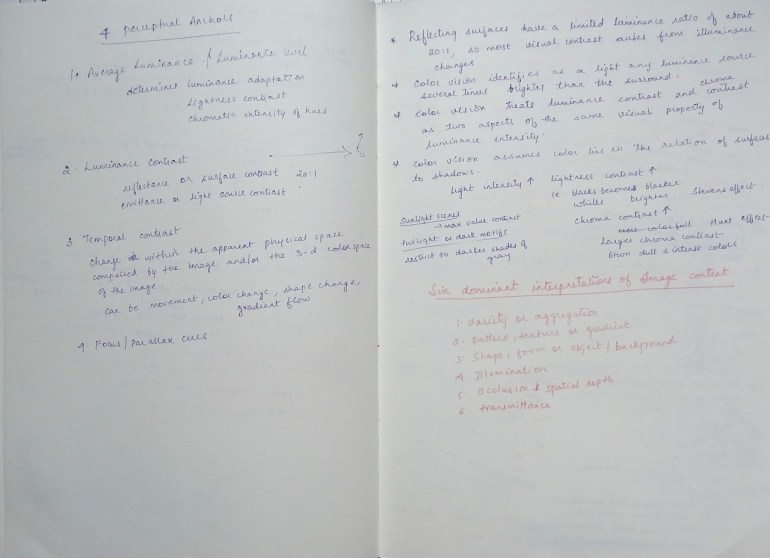 4 perceptual Anchors
1. Average Luminance / Luminance level
determines luminance adaptation
lightness contrast
chromatic intensity of hues
2. Luminance contrast
reflectance or surface contrast 20:1
emittance or light source contrast
3 Temporal contrast
change within the apparent physical space
comprised by the image and/or the 3-d colorspace
of the image.
can be movement, color change, shape change,
gradient flow
4. Focus / Parallax cues
* Reflecting surfaces have a limited luminance ratio of about
20:1, so most visual contrast arises from illuminance
changes
* color vision identifies as a light any luminance source
several times brighter than the surround.
* color vision treats luminance contrast and chroma contrast
as two aspects of the same visual property of
luminance intensity.
* color vision assumes color lies in the relation of surfaces
to shadows.
light intensity ↑ lightness contrast ↑
ie blacks becomes blacker
whites brighter Stevens effect
chroma contrast ↑
more colorfull Hunt effect
larger chroma contrast
btwn dull & intense colors
Sunlight scenes
→ max value contrast
twilight or dark motifs
restrict to darker shades of
gray
Six dominant interpretations of Image content
1. Variety or aggregation
2. pattern, texture or gradient
3. Shape, form or object / background
4. Illumination
5. Occlusion & spatial depth
6. transmittance